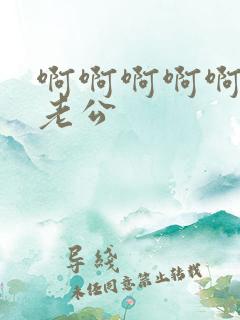 啊啊啊啊啊
老公
导线
未经同意禁止转载